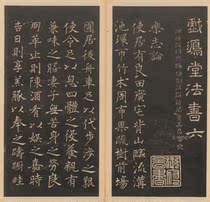 戲鴻堂法書六
樂志論
使居有良田廣宅背山臨流溝
池環帀竹木周布果樹前場
圃居後舟車足以代步涉之艱
使令足以息四體之役養親有
兼味之膳妻孥無苦身之勞良
朋萃止則陳酒肴以娛之嘉時
吉日則享羔豚以奉之躊躇畦